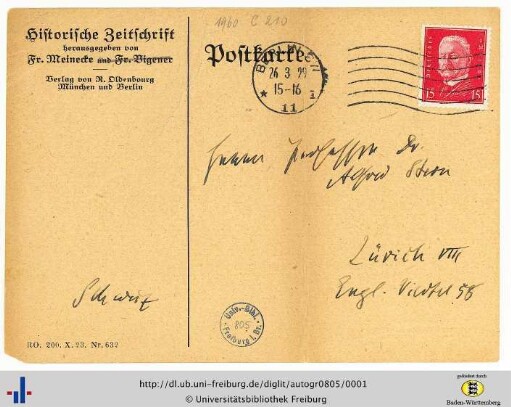 1960 C 210
Historische Zeitschrift
herausgegeben von
Fr. Meinecke und Fr. Vigener
Verlag von R. Oldenbourg
München und Berlin
Postkarte
BERLIN
26 3 29
15-16
* 11 i
DEUTSCHES REICH
15 15
Herrn Professor Dr.
Alfred Stern
Zürich VIII
Engl. Viertel 58
Schweiz
Univ.-Bibl.
805
Freiburg i. Br.
RO. 200. X. 23. Nr. 632
http://dl.ub.uni-freiburg.de/diglit/autogr0805/0001
© Universitätsbibliothek Freiburg
gefördert durch
Baden-Württemberg